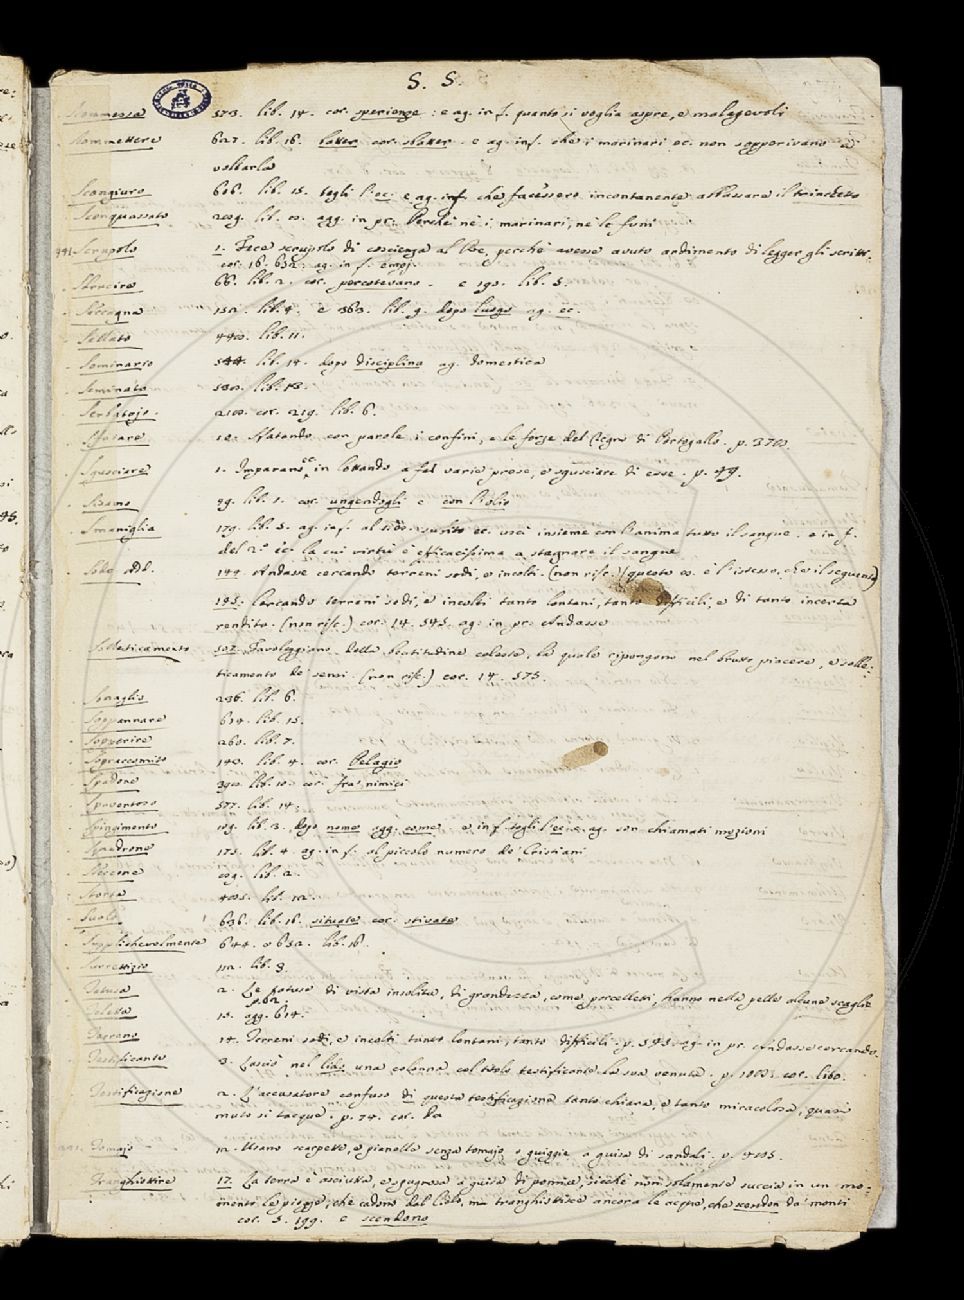 S. S.
Scommessa 573. lib. 14. cor. sperienze: e ag. in f. quanto si voglia aspre, e malagevoli
Scommettere 627. lib. 16. cor. e ag. inf. che i marinari ec. non sapperivano a
voltarla
Scongiuro 606. lib. 15. togli l'ec. e ag. inf. che facessero incontanente abbassare il trinchetto
Sconquassato 209. lib. agg. in pr. Perchè nè i marinari, nè le funi
Scrupolo 1. Fece scrupolo di coscienza al Re, perchè avesse avuto ardimento di legger gli scritti.
cor. 16. 632. ag. in f.
66. lib. 2. cor. percotevano. e 190. lib. 5.
152. lib. 4. e 363. lib. 9. dopo luogo ag. ec.
Sellato 440. lib. 11.
Seminario 544. lib. 14. dopo disciplina ag. domestica
Seminato lib. 13.
Serbatojo. 210. cor. 219. lib. 6.
Sfatare 12. Sfatando con parole i confini, e le forze del Regno di Portogallo. p.
Sgusciare 1. Imparano ec. in lottando a far varie prese, e sgusciare di esse. p. 49.
Sisamo 99. lib. 1. cor. ungendogli e con l'olio
Smaniglia 179. lib. 5. ag. in f. al subito ec. uscì insieme con l'anima tutto il sangue. e in f.
del 2.º ec. la cui virtù è efficacissima a stagnare il sangue
Sodo add. 144. Andasse cercando terreni sodi, e incolti. (non risc.) (questo es. è l'istesso, che il seguente)
195. Cercando terreni sodi, e incolti tanto lontani, tanto difficili, e di tanto incerta
rendita. (non risc.) cor. 14. 545. ag. in pr. Andasse
Solleticamento 507. Favoleggiano della beatitudine celeste, la quale ripongono nel brutto piacere, e solle-
ticamento de' sensi. (non risc.) cor. 14. 575.
Sonaglio 236. lib. 6.
Soppannare 614. lib. 15.
Sopperire 260. lib. 7.
Sopraccomito 140. lib. 4. cor. Pelagio
Spadone 390. lib. 10. cor. fra' nimici
Spaventoso 577. lib. 14.
Spingimento 109. lib. 3. dopo nome agg. come e in f. togli l'ec. e ag. son chiamati mozioni
Squadrone 175. lib. 4. ag. in f. al piccolo numero de' Cristiani
lib. 2.
Storsa 405. lib.
Suolo 636. lib. 16. situate cor. stivate
Supplichevolmente 644. e 652. lib. 16.
Surrettizio lib. 3.
Tatusa 2. Le tatuse di vista insolita, di grandezza, come porcelletti, hanno nella pelle alcune scaglie
p. 62.
15. agg. 614.
Terreno 14. Terreni sodi, e incolti tanto lontani, tanto difficili. p. 545. ag. in pr. Andasse cercando.
Testificante 3. Lasciò nel lido una colonna col titolo testificante la sua venuta. p. cor. libo.
Testificazione 2. L'accusatore confuso di questa testificazione tanto chiara, e tanto miracolosa, quasi
muto si tacque. p. 74. cor. da
Tomajo Usano scarpette, e pianelle senza tomajo, e guiggie a guisa di sandali. p. 405.
Tranghiottire 17. La terra è asciutta, e spugnosa a guisa di pomice, sicchè non solamente succia in un mo-
mento le piogge, che cadono dal Cielo, ma tranghiottisce ancora le acque, che scendon da' monti
cor. 5. 199. e scendono